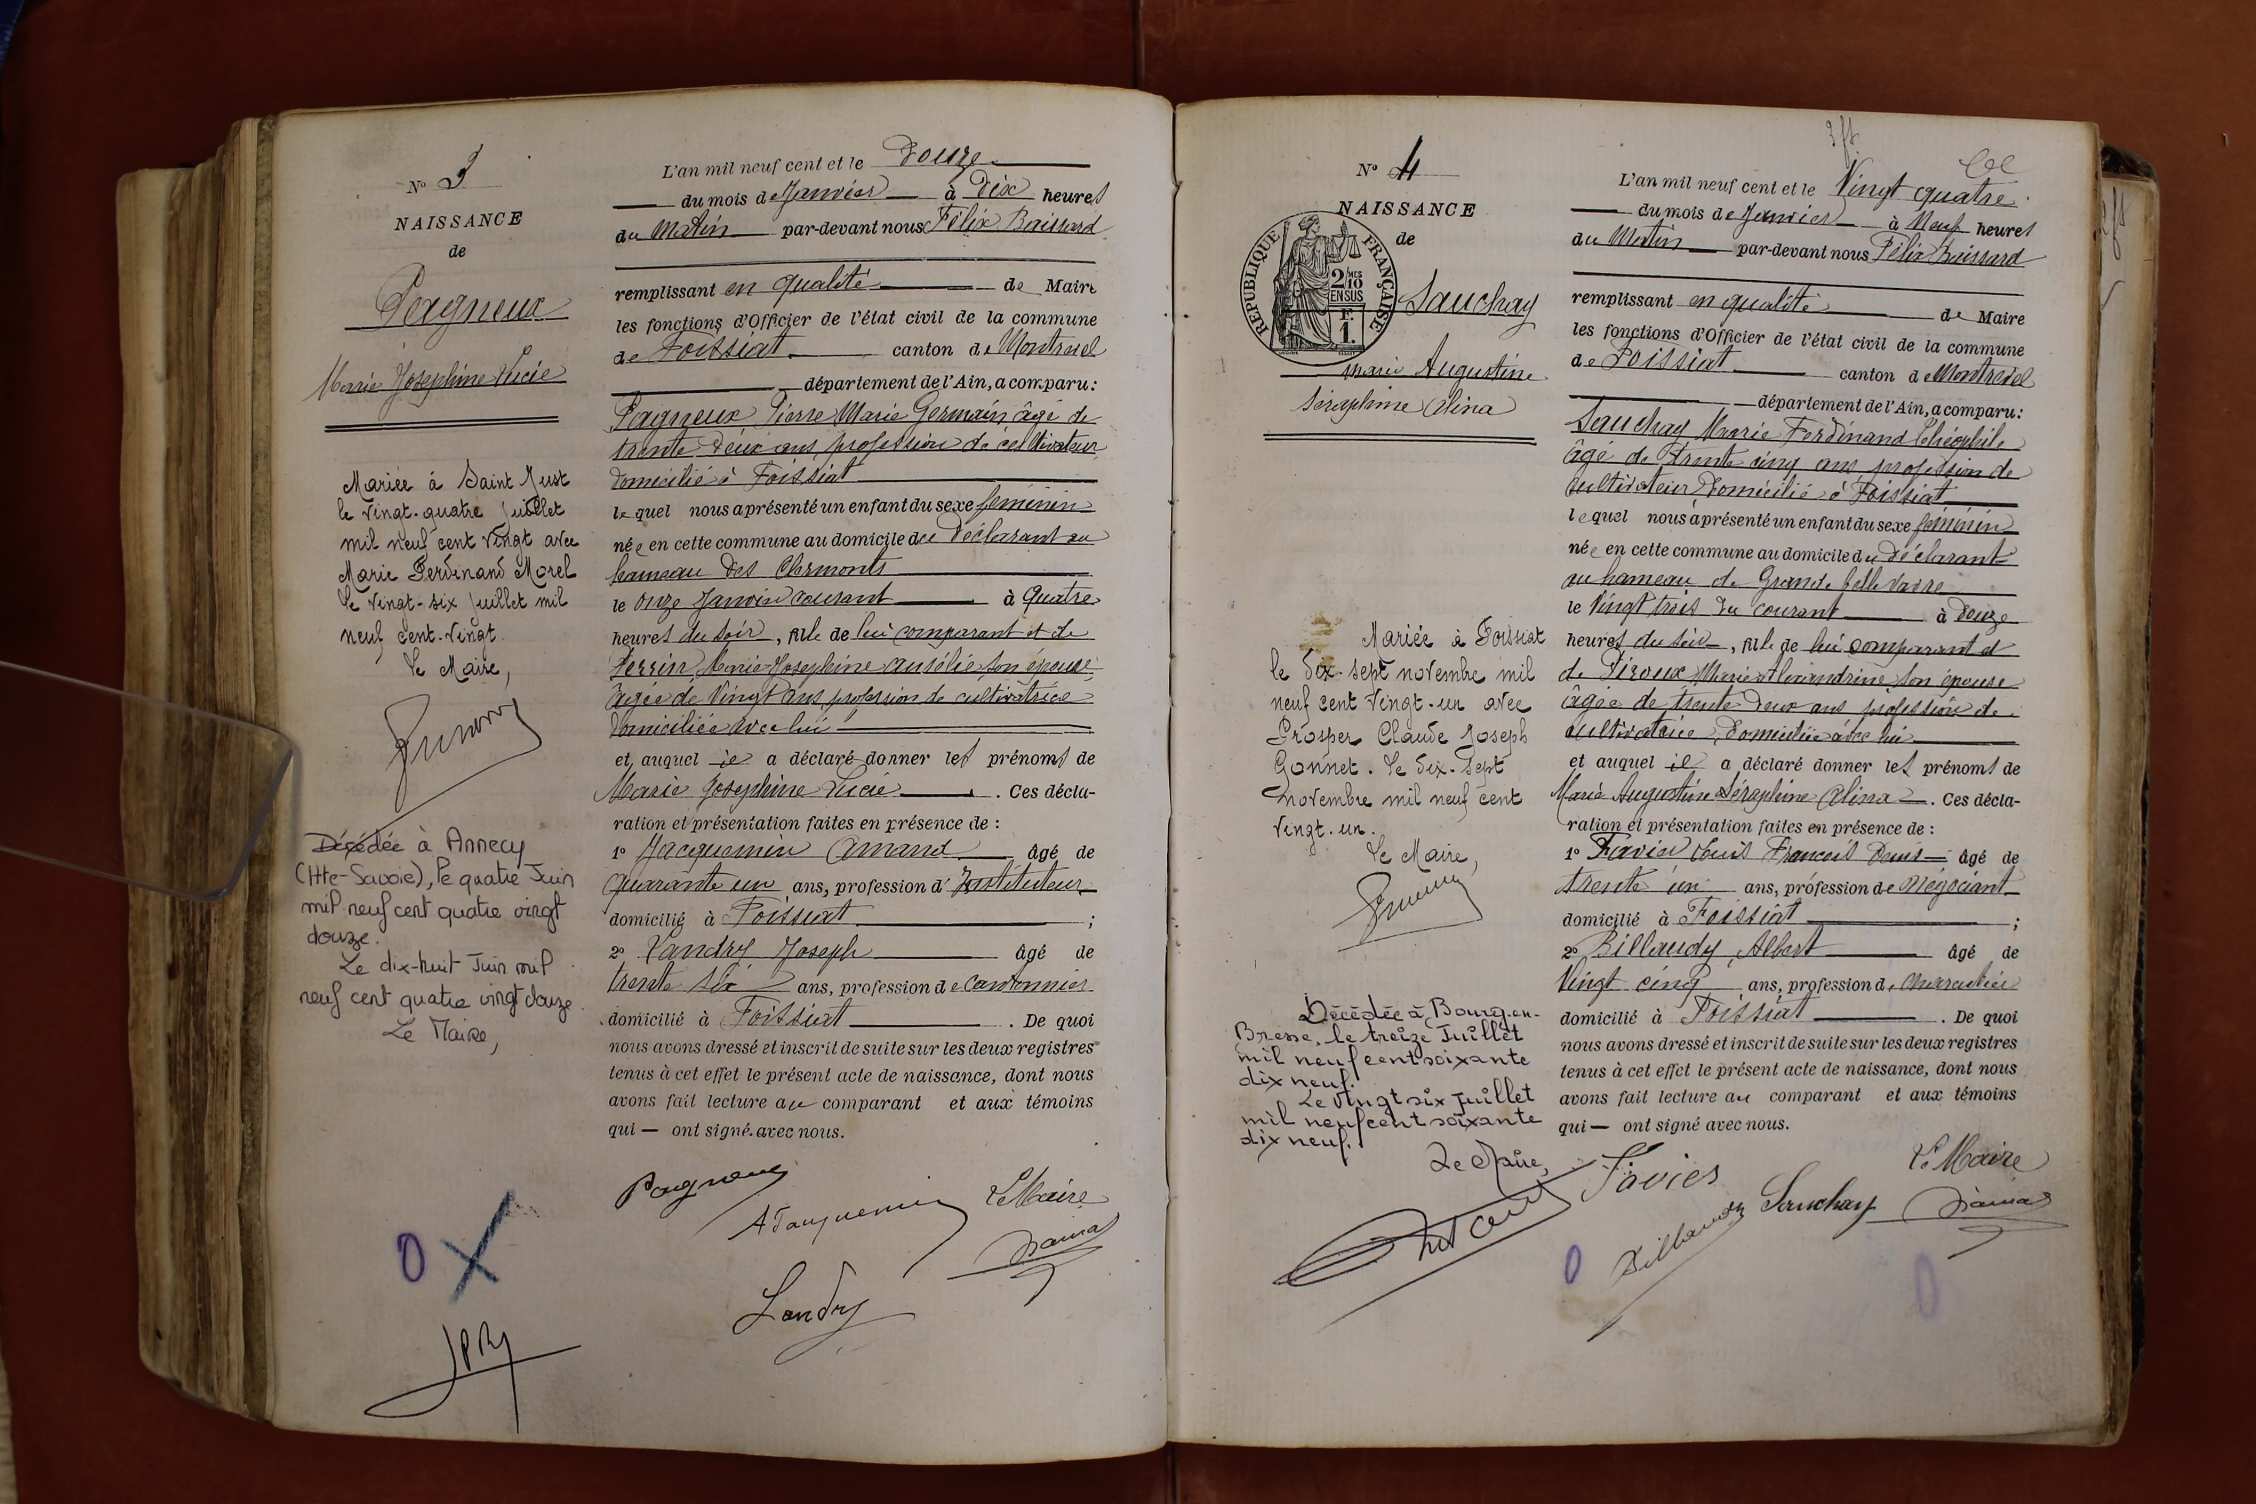 N° 3
NAISSANCE
de
Pagneux
Marie Josephine Lucie
Mariée à Saint Just
le vingt-quatre juillet
mil neuf cent vingt avec
Marie Ferdinand Morel
Le vingt-six juillet mil
neuf cent-vingt
Le Maire,
Décédée à Annecy
(Hte-Savoie), le quatre Juin
mil neuf cent quatre vingt
douze.
Le dix-huit Juin mil
neuf cent quatre vingt douze
Le Maire,
L'an mil neuf cent et le Douze
du mois de Janvier à Dix heures
du Matin par-devant nous Félix Baissard
remplissant en qualité de Maire
les fonctions d'Officier de l'état civil de la commune
de Foissiat canton de Montrevel
département de l'Ain, a comparu:
Pagneux Pierre Marie Germain âgé de
trente deux ans, profession de cultivateur
domicilié à Foissiat
lequel nous a présenté un enfant du sexe féminin
née en cette commune au domicile du déclarant au
hameau des Clermonts
le onze Janvier courant à Quatre
heures du soir, fille de lui comparant et de
Perrin Marie Josephine Aurélie son épouse
âgée de vingt ans, profession de cultivatrice
domiciliée avec lui
et auquel il a déclaré donner les prénoms de
Marie Josephine Lucie. Ces décla-
ration et présentation faites en présence de :
1° Jacquemin Amand âgé de
quarante un ans, profession d'Instituteur
domicilié à Foissiat ;
2° Landry Joseph âgé de
trente six ans, profession de cantonnier
domicilié à Foissiat. De quoi
nous avons dressé et inscrit de suite sur les deux registres
tenus à cet effet le présent acte de naissance, dont nous
avons fait lecture au comparant et aux témoins
qui — ont signé avec nous.
Pagneux
A Jacquemin
Le Maire
Landry
0 X
N° 4
NAISSANCE
de
RÉPUBLIQUE FRANÇAISE
2/10 MES
EN SUS
F.
1.
Sauchay
Marie Augustine
Séraphine Alina
Mariée à Foissiat
le dix-sept novembre mil
neuf cent vingt-un avec
Prosper Claude Joseph
Gonnet. Le dix-sept
novembre mil neuf cent
vingt-un.
Le Maire,
Décédée à Bourg-en-
Bresse, le treize Juillet
mil neuf cent soixante
dix neuf.
Le vingt six Juillet
mil neuf cent soixante
dix neuf.
Le Maire,
L'an mil neuf cent et le Vingt quatre
du mois de Janvier à Neuf heures
du Matin par-devant nous Félix Baissard
remplissant en qualité de Maire
les fonctions d'Officier de l'état civil de la commune
de Foissiat canton de Montrevel
département de l'Ain, a comparu:
Sauchay Marie Ferdinand Théophile
âgé de trente cinq ans profession de
cultivateur domicilié à Foissiat
lequel nous a présenté un enfant du sexe féminin
née en cette commune au domicile du déclarant
au hameau de Grande
le Vingt trois du courant à Douze
heures du soir, fille de lui comparant et
de Piroux Marie Alexandrine son épouse
âgée de trente deux ans profession de
cultivatrice, domiciliée avec lui
et auquel il a déclaré donner les prénoms de
Marie Augustine Séraphine Alina. Ces décla-
ration et présentation faites en présence de :
1° Favier Louis François Denis âgé de
trente un ans, profession de Négociant
domicilié à Foissiat ;
2° Billaudy Albert âgé de
Vingt cinq ans, profession de
domicilié à Foissiat. De quoi
nous avons dressé et inscrit de suite sur les deux registres
tenus à cet effet le présent acte de naissance, dont nous
avons fait lecture au comparant et aux témoins
qui — ont signé avec nous.
Favier
Billaudy
Sauchay
Le Maire
0
0